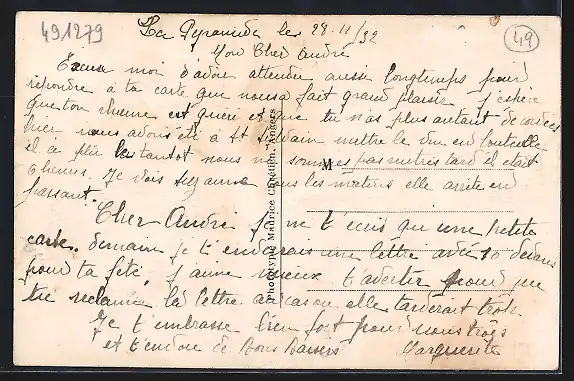 491279
49
La Pyramide le 28-11/32
Mon Cher André
Excuse moi d'avoir attendu aussi longtemps pour
répondre à ta carte que nous a fait grand plaisir j'espère
que ton rhume est guéri et que tu n'as plus autant de
hier nous avons été à St Sylvain mettre le vin en bouteille
il a plu tantot nous ne sommes pas rentrés tard il était
6 heures. Je vois Suzanne tous les matins elle arrête en
passant.
M
Cher André je ne t'écris qu'une petite
carte. demain je t'enverais une lettre avec 10 dedans
pour ta fête, j'aime mieux t'avertir pour que
tu réclame la lettre au cas ou elle tarderait trop
Je t'embrasse bien fort pour nous trois
et t'envoie de Bons Baisers
Marguerite
Phototypie Maurice Chrétien, Angers